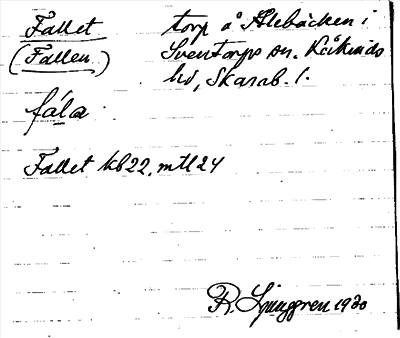 Fallet torp å Alebäcken i
(Fallen) Sventorps sn. Kåkinds
hd, Skarab. l.
fála
Fallet kb22, mtl 24
R. Ljunggren 1930